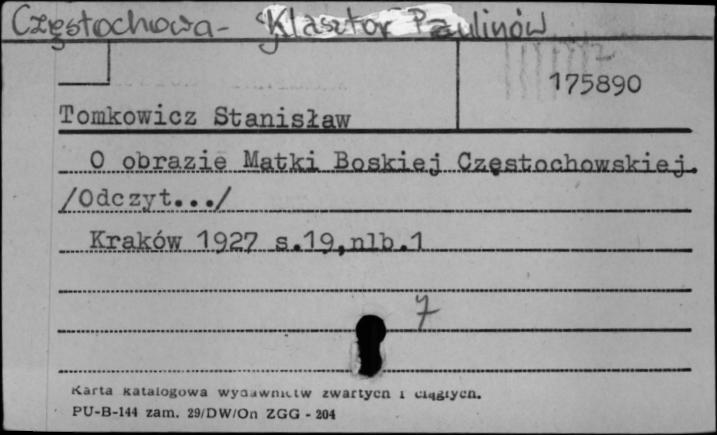 Częstochowa - Klasztor Paulinów
175890
Tomkowicz Stanisław
O obrazie Matki Boskiej Częstochowskiej.
/Odczyt.../
Kraków 1927 s.19,nlb.1
7
Karta katalogowa wydawnictw zwartych i ciągłych.
PU-B-144 zam. 29/DW/On ZGG - 204